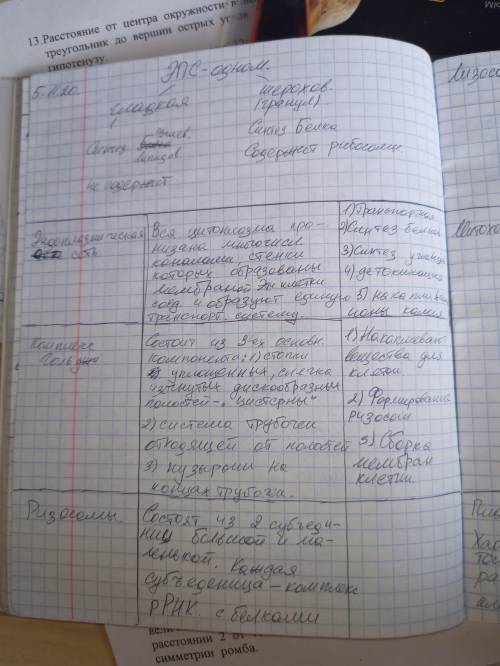 13.Расстояние от центра окружности
треугольник до вершин острых
гипотенузу.
5.11.20.
ЭПС-одном.
гладкая
шерохов.
(гранул)
Синтез углев.
липидов
Синтез Белка
Содержит рибосомы
не содержит
Эндоплазматическая
сеть
Вся цитоплазма про-
низана
каналами, стенки
которых образованы
мембраной Эти клетки
соед и образуют единую
транспорт. систему.
1) Транспортная
2) Синтез белков
3) Синтез
4) детоксикация
5)
ионы калия
Комплекс
Гольджи
Состоит из 3-ех основн.
компонента: 1) стопки
уплощенных, слегка
изогнутых дискообразных
полостей-"цистерны"
2) система трубочек
отходящей от полостей
3) пузырьки на
концах трубочек.
1) Накапливают
вещества для
клетки.
2) Формирование
лизосом
3) Сборка
мембран
клетки.
Рибосомы.
Состоят из 2 субъеди-
ниц большой и ма-
ленькой. Каждая
субъеденица-комплекс
рРНК. с белками
расстоянии 2 от
симметрии ромба.